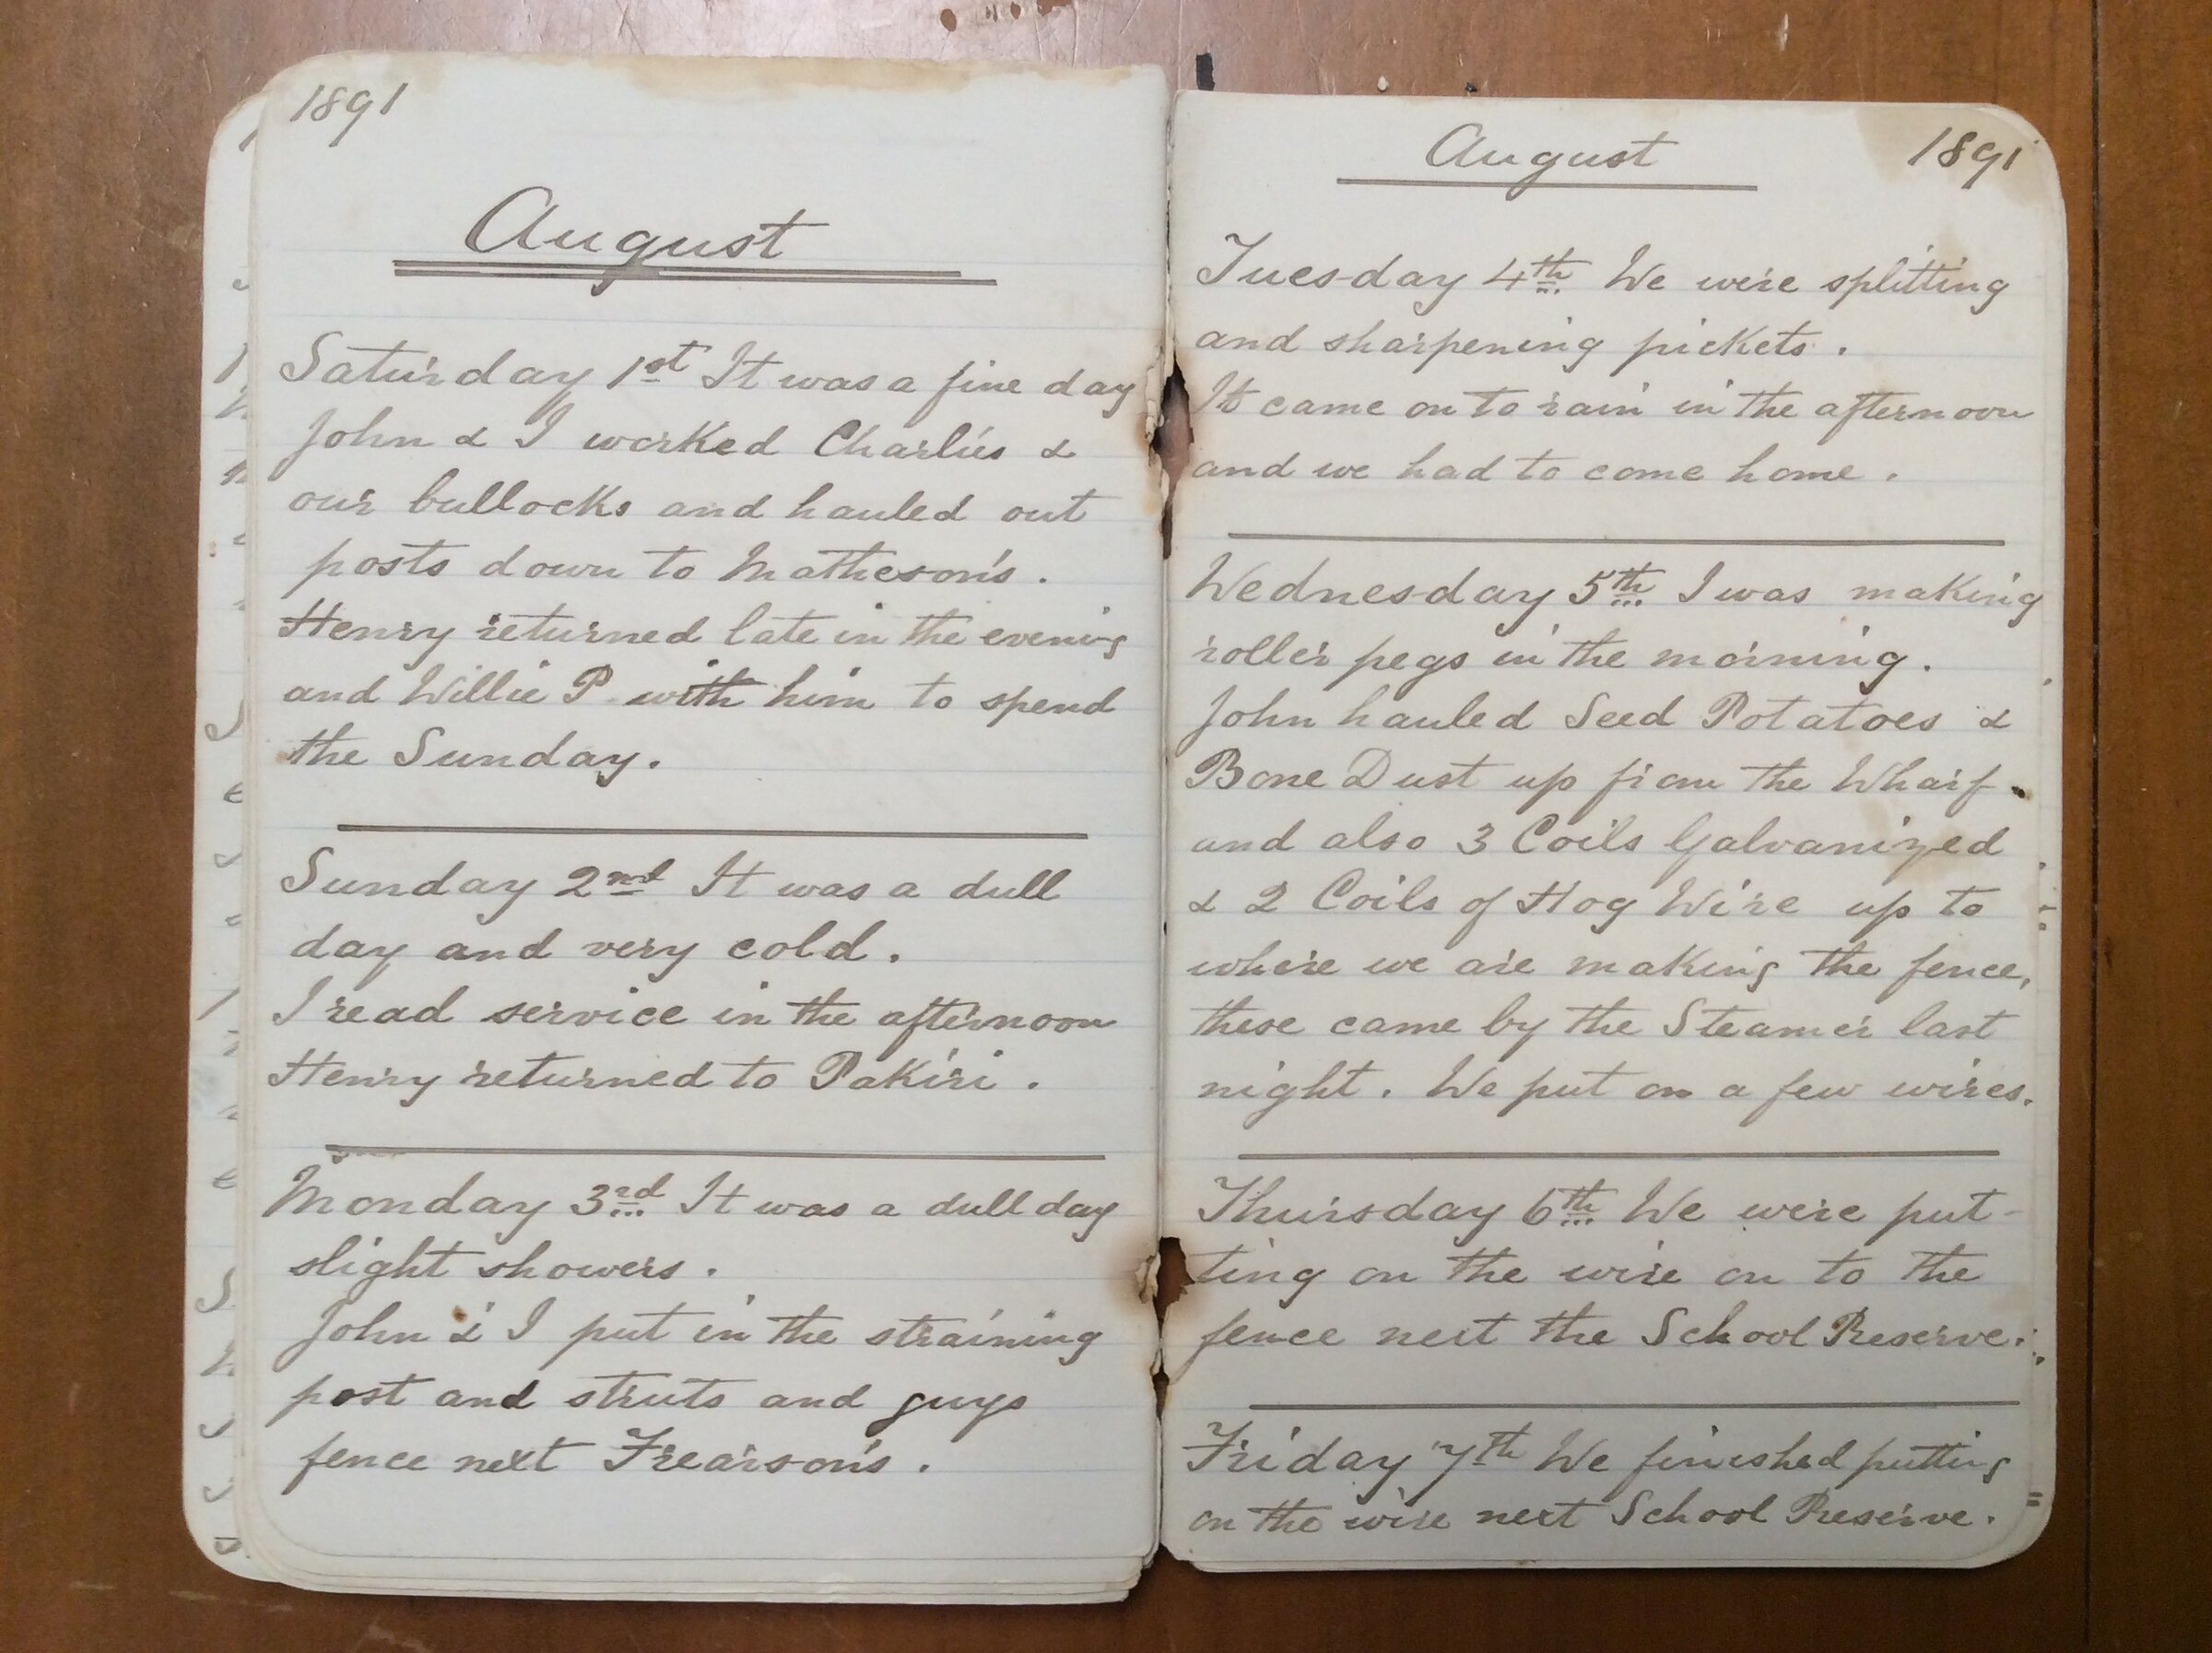 1891
August
Saturday 1st It was a fine day
John & I worked Charlies &
our bullocks and hauled out
posts down to Matheson's.
Henry returned late in the evening
and Willie P with him to spend
the Sunday.
Sunday 2nd It was a dull
day and very cold.
I read service in the afternoon
Henry returned to Pakiri.
Monday 3rd It was a dull day
slight showers.
John & I put in the straining
post and struts and guys
fence next Frearson's.
August 1891
Tuesday 4th We were splitting
and sharpening pickets.
It came on to rain in the afternoon
and we had to come home.
Wednesday 5th I was making
roller pegs in the morning.
John hauled Seed Potatoes &
Bone Dust up from the Wharf.
and also 3 Coils Galvanized
& 2 Coils of Hog Wire up to
where we are making the fence,
these came by the Steamer last
night. We put on a few wires.
Thursday 6th We were put-
ting on the wire on to the
fence next the School Reserve.
Friday 7th We finished putting
on the wire next School Reserve.